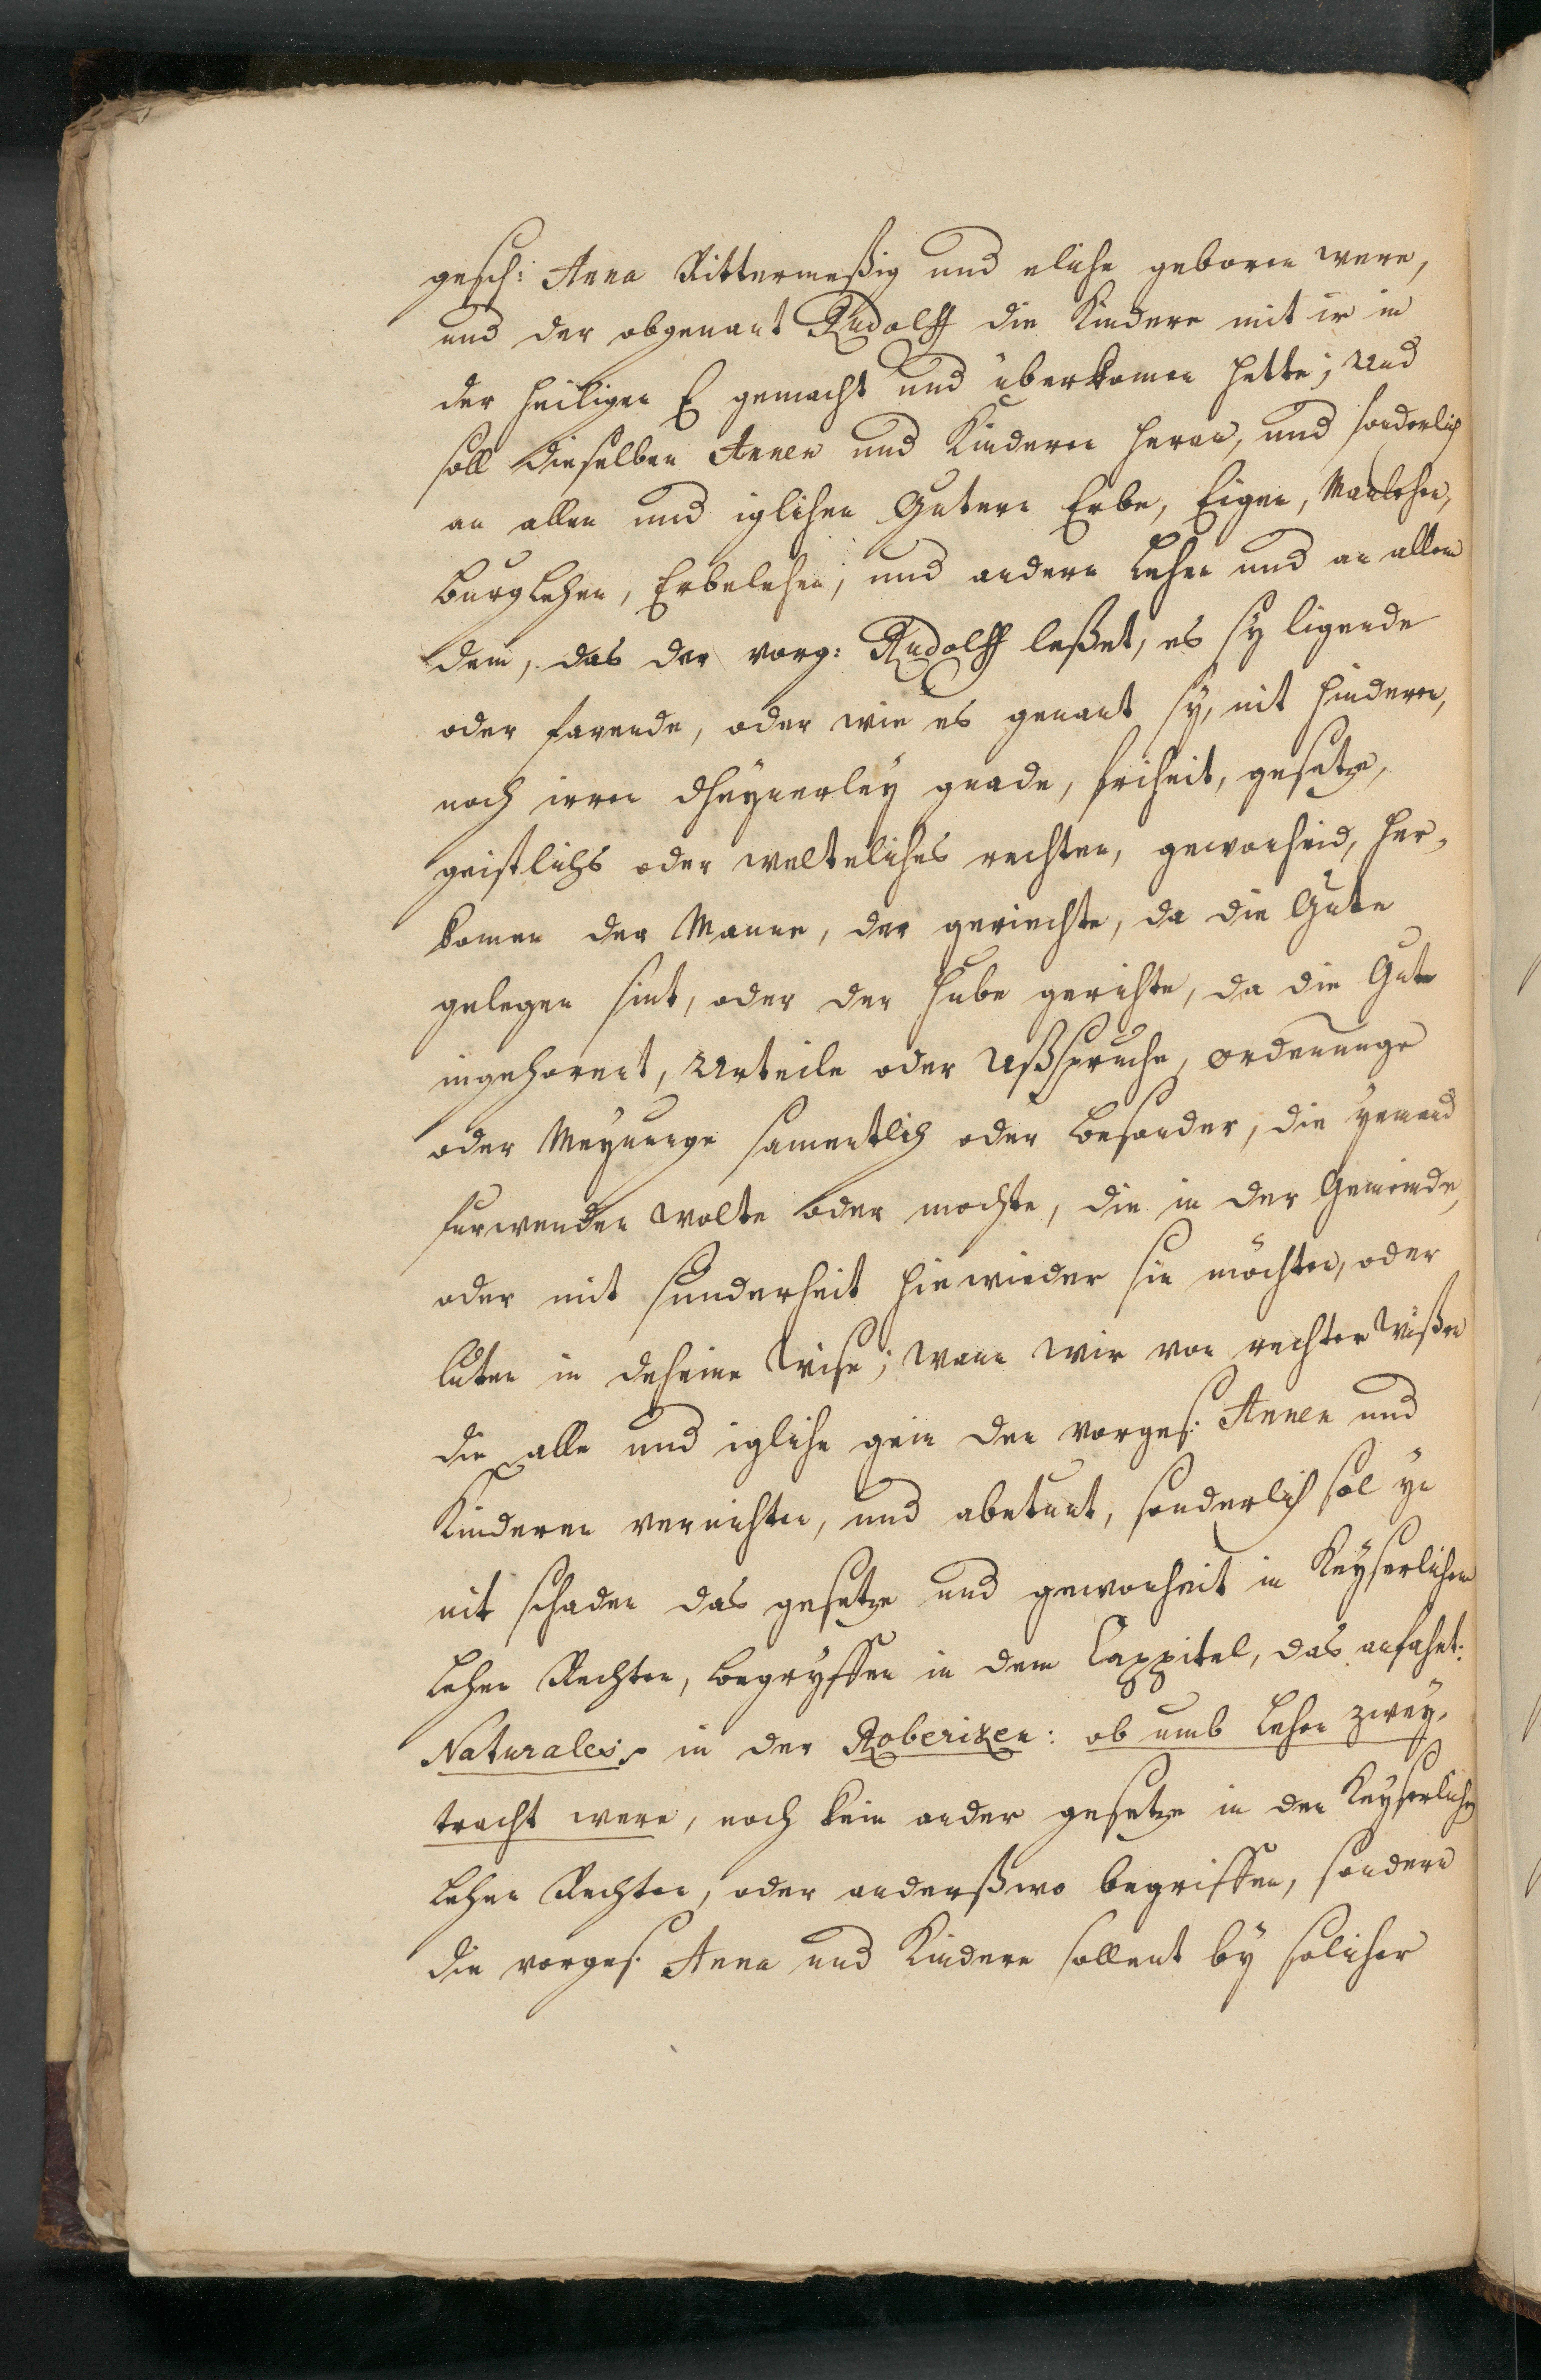 gesch: Anna Rittermeßig und eliche geboren were,
und der obgenant Rudolff die Kindere mit ir in
der heiligen E gemacht und überkomen hette; Und
soll dieselben Annen und Kinderen heran, und sonderlich
an allen und iglichen Gutern Erbe, Eigen, Manlehen,
burglehen, Erbelehen, und andern Lehen und an allem
dem, das der vorg: Rudolff leßet, es sy ligende
oder farende, oder wie es genant sy, nit hindern,
noch irren dheynerley gnade, friheit, gesetze,
geistlichs oder welteliches rechten, gewonheid, her-
komen der Manne, der geriechte, da die Gute
gelegen sint, oder der Hube gerichte, da die Gute
ingehorent, Urteile oder Ußspruche, ordenunge
oder Meynunge samentlich oder besonder, die yemand
furwenden wolte oder mochte, die in der Gemeinde,
oder mit sunderheit hie wieder sin möchten, oder
luten in deheine Wise; wann wir von rechter wißen
die alle und igliche gein den vorges. Annen und
Kinderen vernichten, und abetunt, sonderlich sol yn
nit schaden das gesetze und gewonheit in Keyserlichen
Lehen Rechten, begryffen in dem Cappitel, das anfahet:
Naturales, in der Roberiken: ob umb Lehen zwey-
tracht were, noch kein ander gesetze in den Keyserlichen
Lehen Rechten, oder anderßwo begriffen, sondern
die vorges. Anna und Kindere sollent by solicher